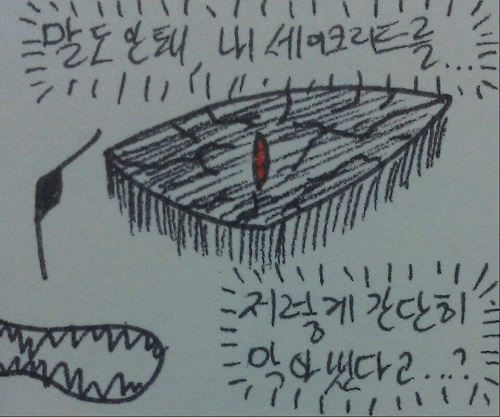 말도 안돼, 내 세이크리트를...
저렇게 간단히
막아냈다고...?